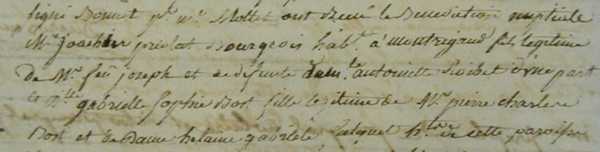 signé Bonnet pr mr Mottet ont Recu la Benediction nuptiale
Mr Joachin prelat Bourgeois habt. a montrigaud fils legitime
de Mr feu joseph et de defunte dame antoinette d'une part
et dlle gabrielle Sophie Bost fille legitime de Mr pierre charle
Bost et de Dame helaine gabriele hts de cette paroisse